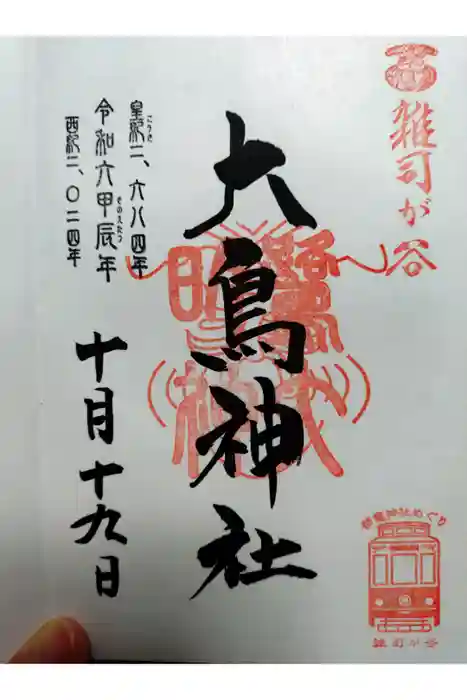 雑司が谷
大鳥神社
皇紀二、六八四年
こうき
令和六甲辰年
きのえたつ
西紀二、〇二四年
十月十九日
雑司が谷